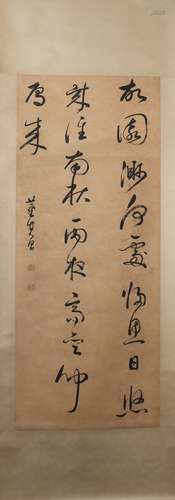 故園渺何處歸思日悠
哉淮南秋雨夜高齋
雁來
董其昌